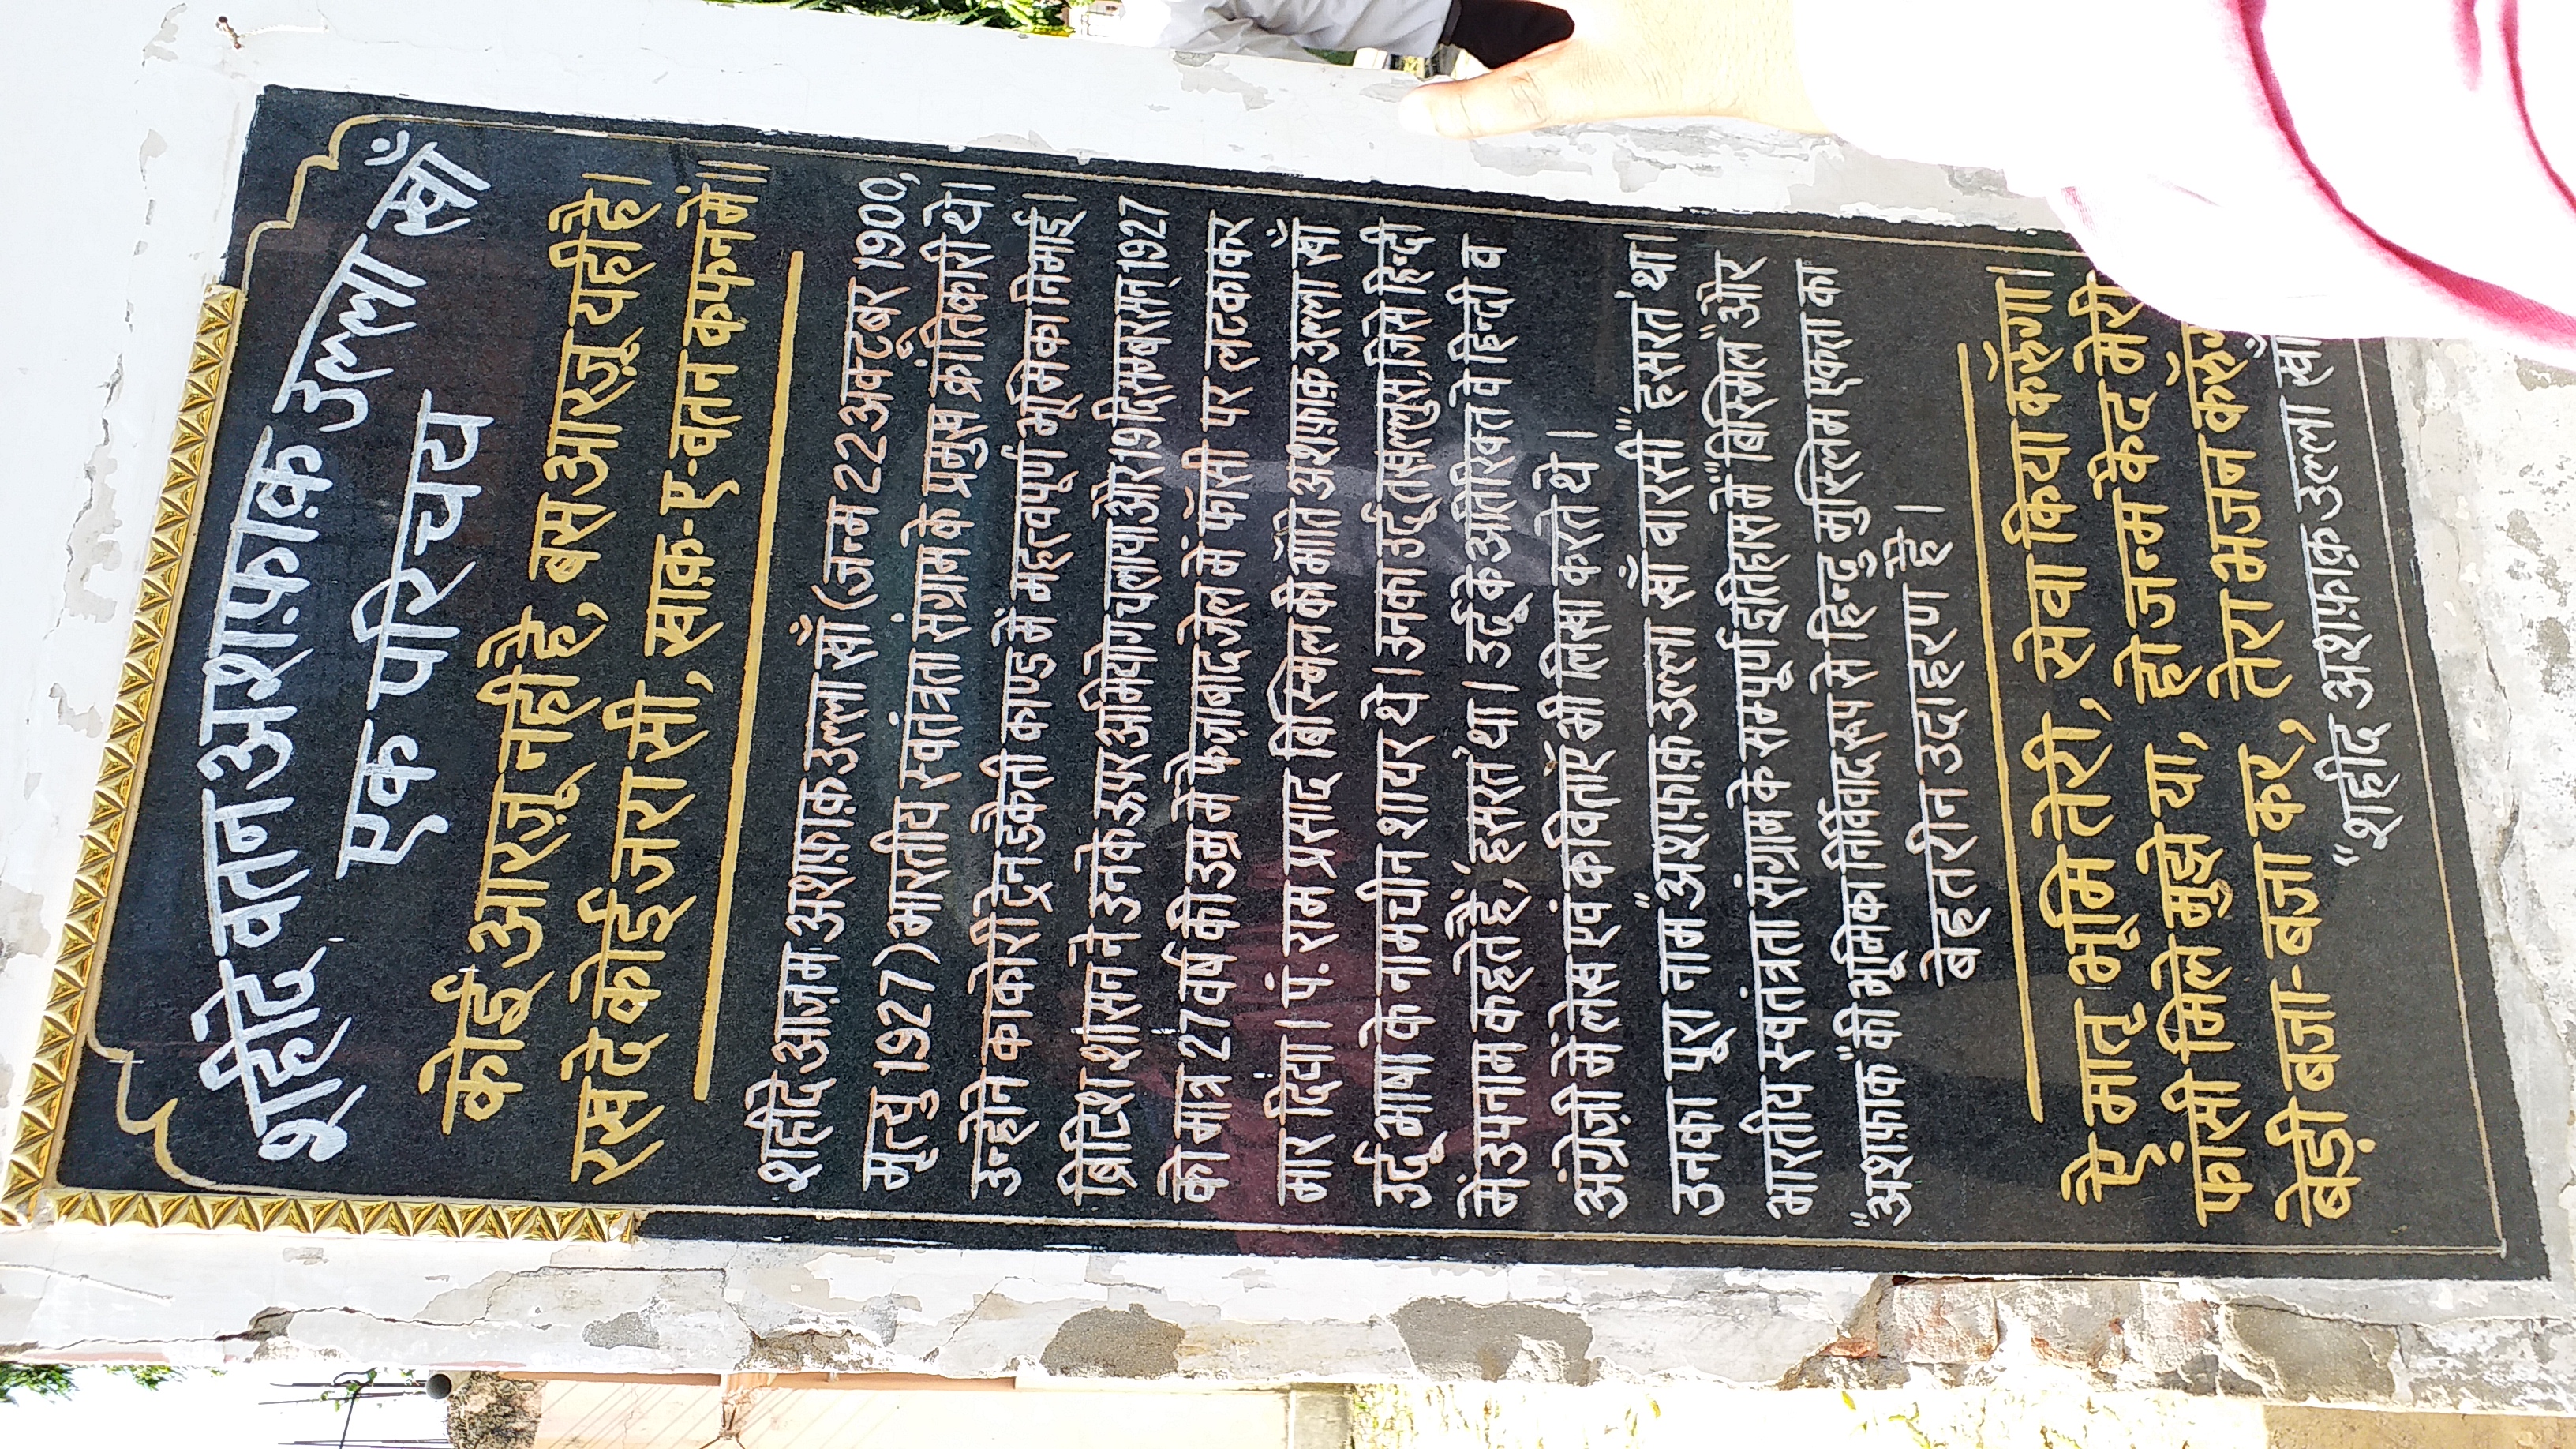 शहीदे वतन अशफ़ाक़ उल्ला खाँ
एक परिचय
कोई आरज़ू नही है, बस आरज़ू यही है।
रख दे कोई जरा सी, खाक़-ए-वतन कफन में॥
शहीदे आज़म अशफ़ाक़ उल्ला खाँ (जन्म 22 अक्टूबर 1900,
मृत्यु 1927) भारतीय स्वतंत्रता संग्राम के प्रमुख क्रांतिकारी थे।
उन्होंने काकोरी ट्रेन डकैती काण्ड में महत्वपूर्ण भूमिका निभाई।
ब्रिटिश शासन ने उनके ऊपर अभियोग चलाया और 19 दिसम्बर सन् 1927
को मात्र 27 वर्ष की उम्र में फैज़ाबाद जेल में फाँसी पर लटकाकर
मार दिया। पं. राम प्रसाद बिस्मिल की भाँति अशफ़ाक़ उल्ला खाँ
उर्दू भाषा के नामचीन शायर थे। उनका उर्दू तख़ल्लुस, जिसे हिन्दी
में उपनाम कहते हैं, 'हसरत' था। उर्दू के अतिरिक्त वे हिन्दी व
अंग्रेज़ी में लेख एवं कविताएँ भी लिखा करते थे।
उनका पूरा नाम "अशफ़ाक़ उल्ला खाँ वारसी" 'हसरत' था।
भारतीय स्वतंत्रता संग्राम के सम्पूर्ण इतिहास में "बिस्मिल" और
"अशफ़ाक" की भूमिका निर्विवाद रूप से हिन्दु मुस्लिम एकता का
बेहतरीन उदाहरण है।
ऐ मातृ भूमि तेरी, सेवा किया करुँगा।
फांसी मिले मुझे या, हो जन्म कैद मेरी
बेड़ी बजा-बजा कर, तेरा भजन
"शहीद अशफ़ाक़ उल्ला खाँ